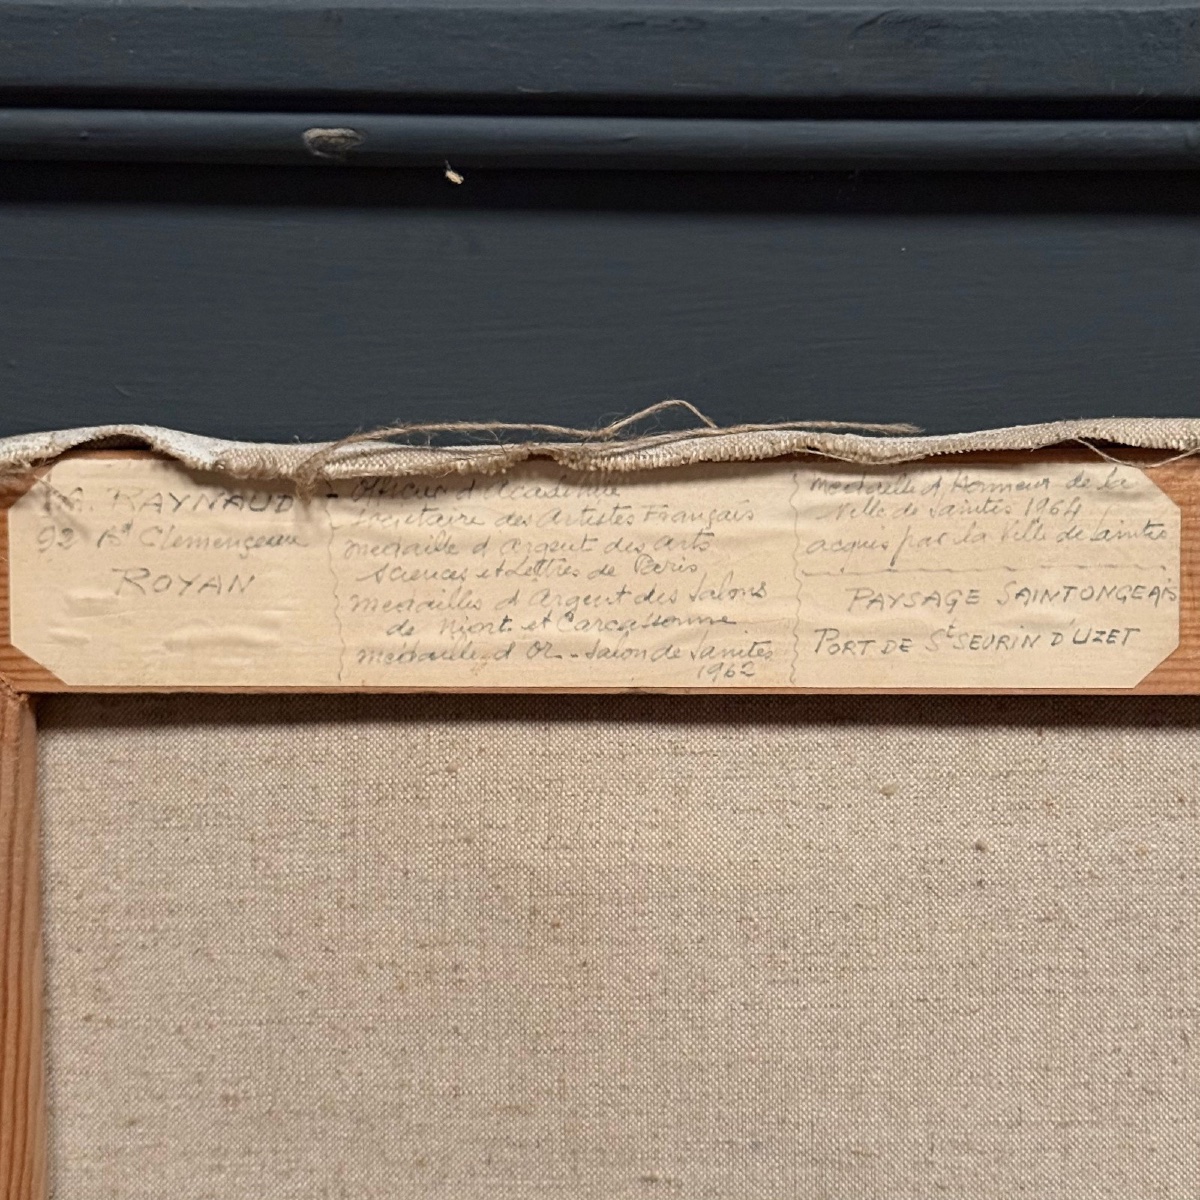 RAYNAUD
92 Bd Clemenceau
ROYAN
Officier d'Académie
Sociétaire des Artistes Français
médaille d'Argent des Arts
Sciences et Lettres de Paris
médailles d'Argent des Salons
de Niort et Carcassonne
médaille d'Or - Salon de Saintes
1962
médaille d'Honneur de la
Ville de Saintes 1964
acquis par la Ville de Saintes
PAYSAGE SAINTONGEAIS
PORT DE St SEURIN D'UZET